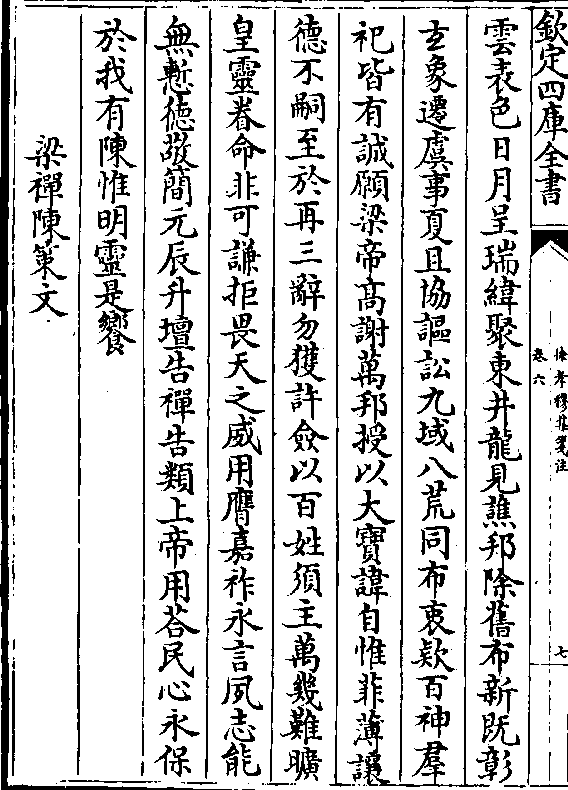 欽定四庫全書
徐孝穆集箋注
卷六
七
雲表色日月呈瑞緯聚東井龍見譙邦除舊布新既彰
玄象遷虞事夏且協謳訟九域八荒同布衷欵百神羣
祀皆有誠願梁帝髙謝萬邦授以大寶諱自惟菲薄讓
德不嗣至於再三辭勿獲許僉以百姓須主萬幾難曠
皇靈眷命非可謙拒畏天之威用膺嘉祚永言夙志能
無慙徳敬簡元辰升壇告禪告類上帝用荅民心永保
於我有陳惟明靈是饗
梁禪陳策文